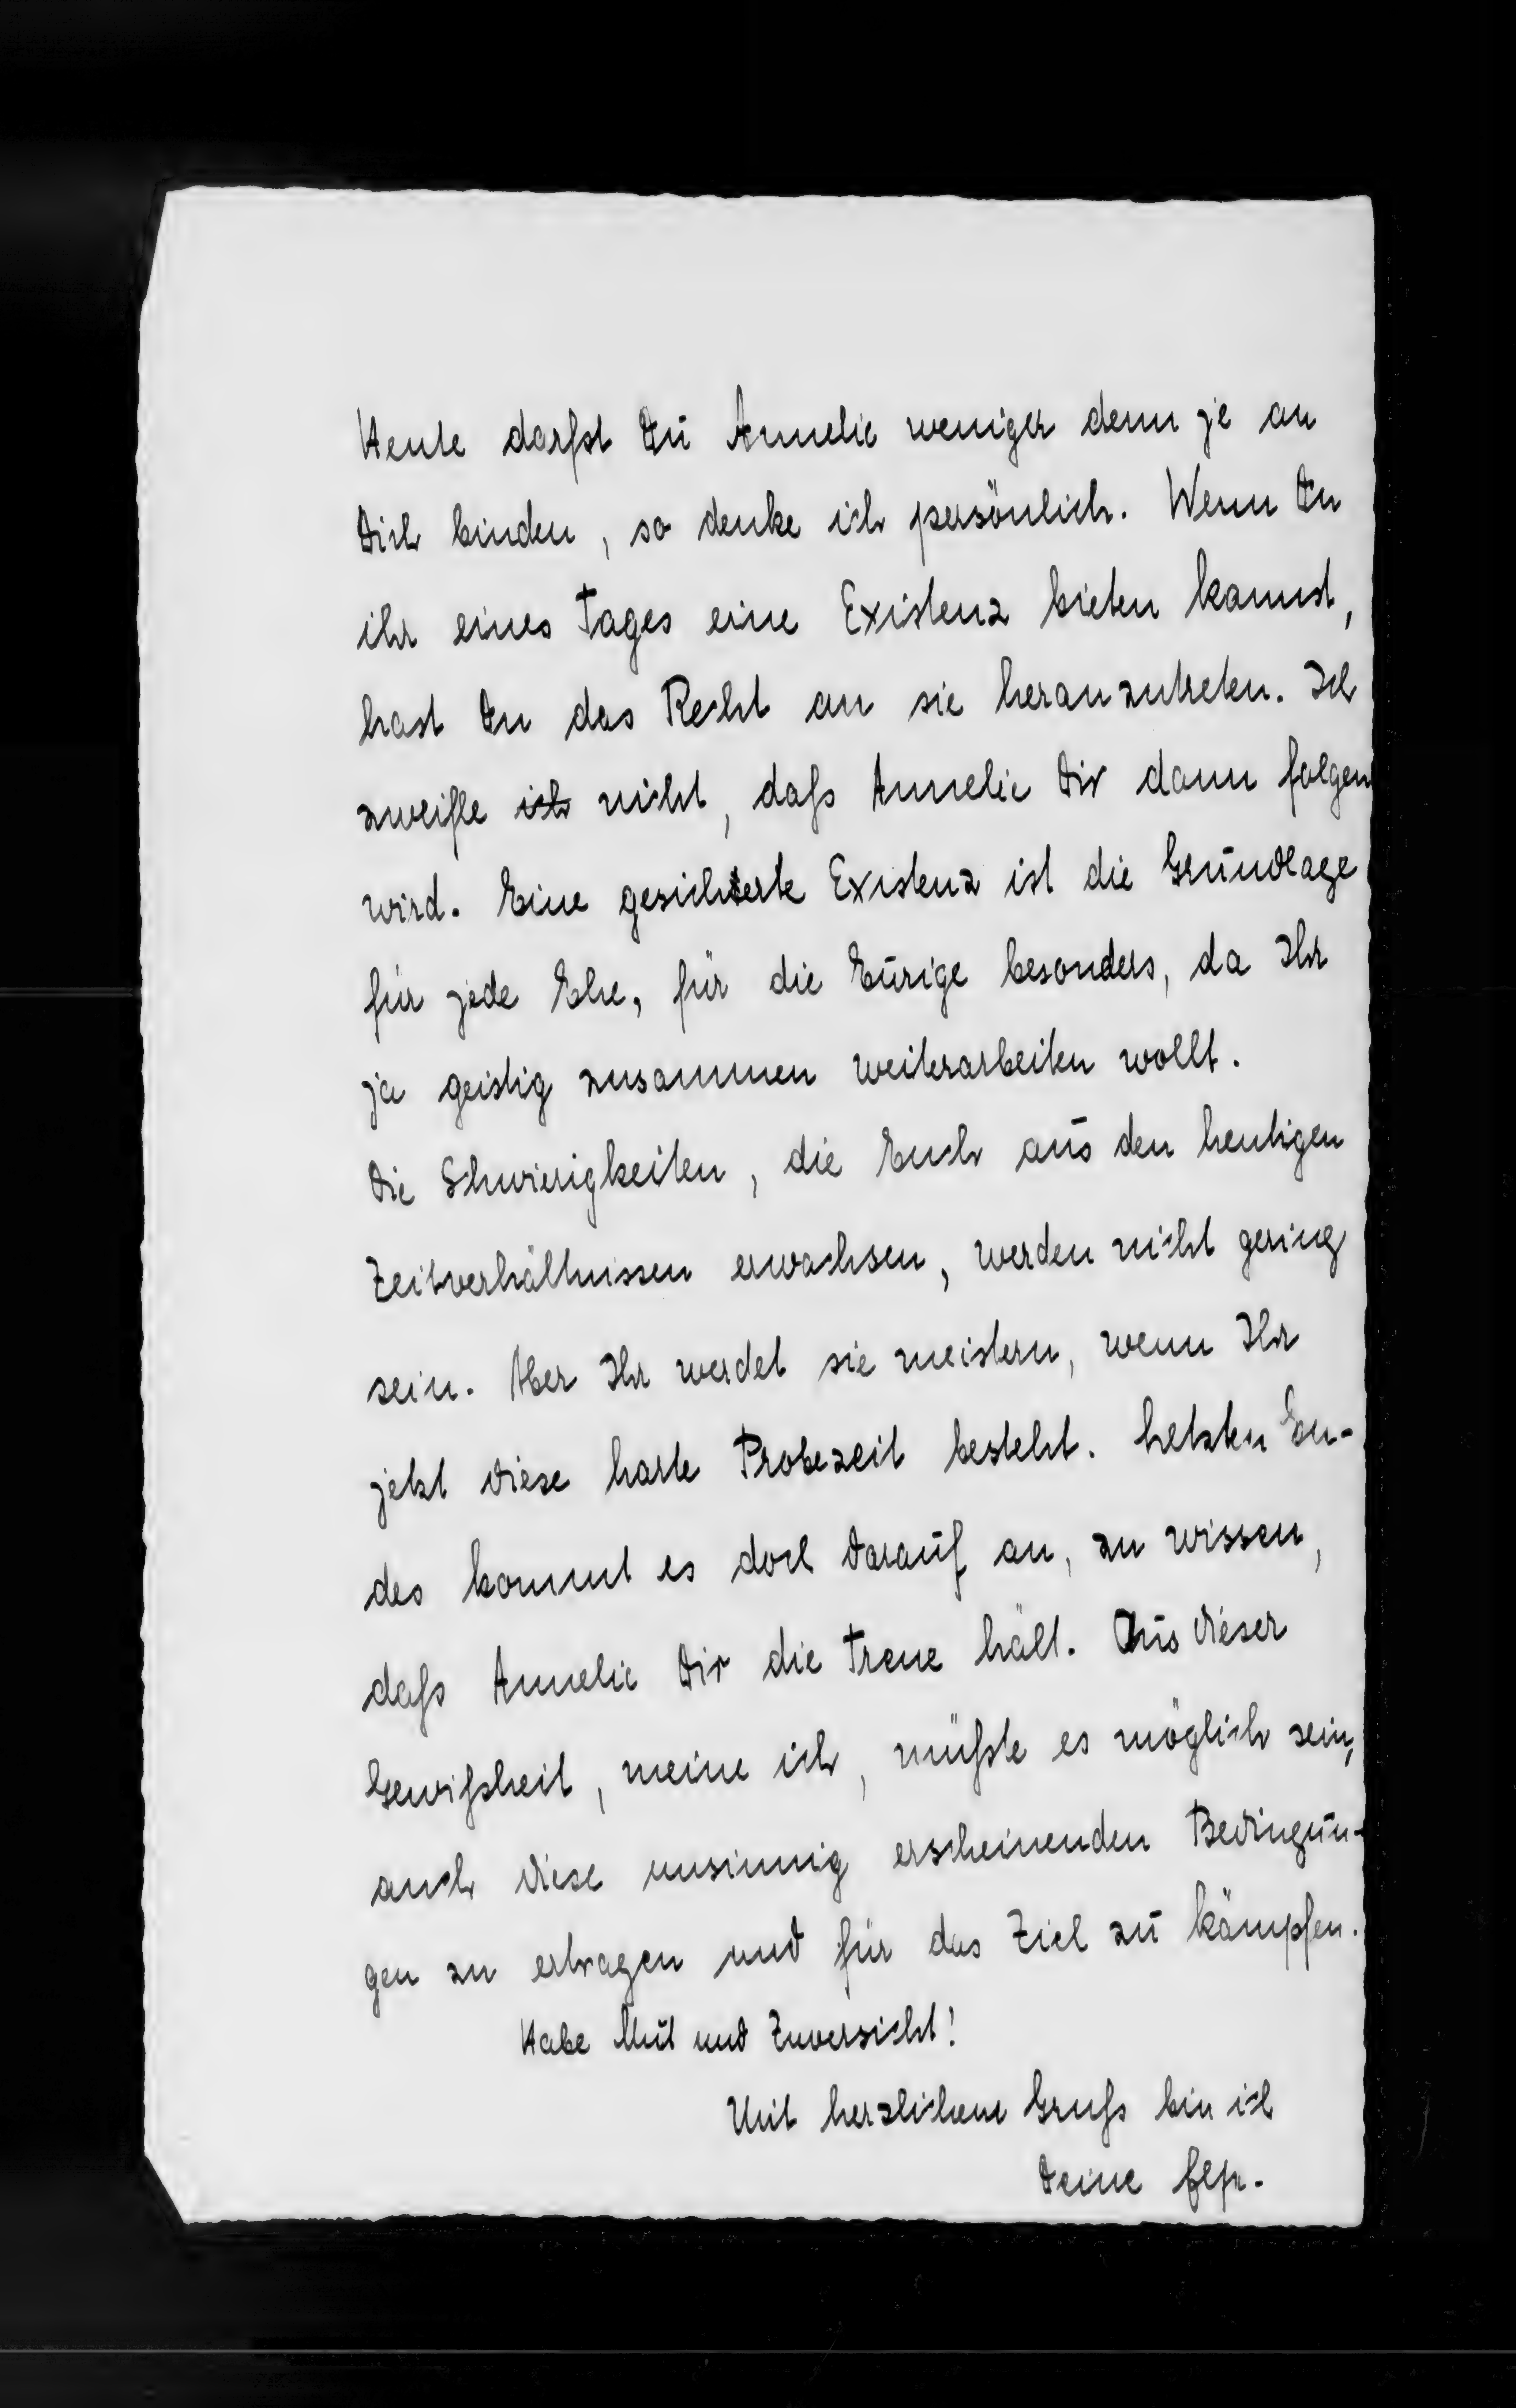 Heute darfst Du Annelie weniger denn je an
Dich binden, so denke ich persönlich. Wenn Du
ihr eines Tages eine Existenz bieten kannst,
hast Du das Recht an sie heranzutreten. Ich
zweifle ich nicht, daß Annelie Dir dann folgen
wird. Eine gesicherte Existenz ist die Grundlage
für jede Ehe, für die Eurige besonders, da Ihr
ja geistig zusammen weiterarbeiten wollt.
Die Schwierigkeiten, die Euch aus den heutigen
Zeitverhältnissen erwachsen, werden nicht gering
sein. Aber Ihr werdet sie meistern, wenn Ihr
jetzt diese harte Probezeit besteht. Letzten En-
des kommt es doch darauf an, zu wissen,
daß Annelie Dir die Treue hält. Aus dieser
Gewißheit, meine ich, müßte es möglich sein,
auch diese unsinnig erscheinenden Bedingun-
gen zu ertragen und für das Ziel zu kämpfen.
Habe Mut und Zuversicht!
Mit herzlichem Gruß bin ich
Deine